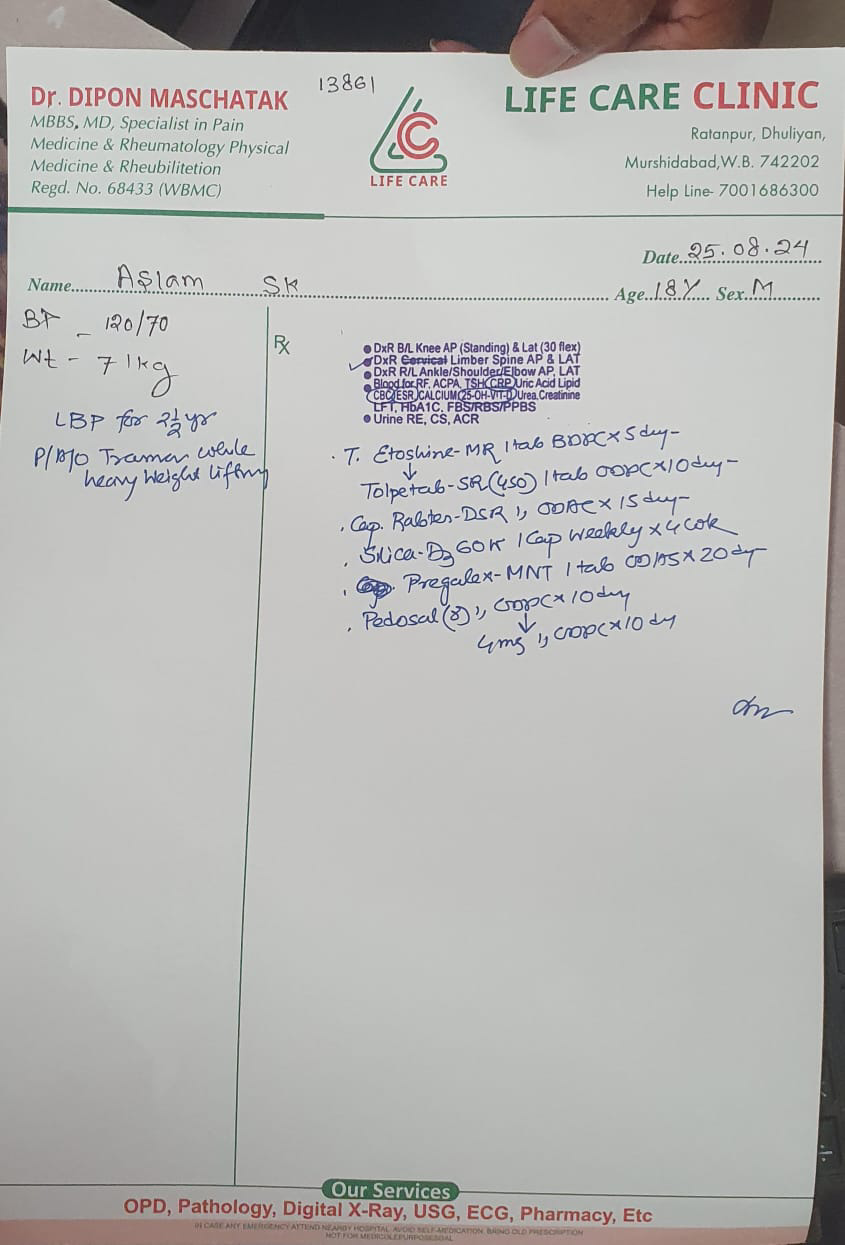 13861
Dr. DIPON MASCHATAK
MBBS, MD, Specialist in Pain
Medicine & Rheumatology Physical
Medicine & Rheubilitetion
Regd. No. 68433 (WBMC)
LIFE CARE
LIFE CARE CLINIC
Ratanpur, Dhuliyan,
Murshidabad,W.B. 742202
Help Line- 7001686300
Date..25.08.24
Name...Aslam SK
Age..18Y.. Sex..M
BP - 120/70
Wt - 71kg
LBP for 2½ yr
while
heavy weight lifting
Rx
DxR B/L Knee AP (Standing) & Lat (30 flex)
DxR Cervical Limber Spine AP & LAT
DxR R/L Ankle/Shoulder/Elbow AP, LAT
Blood for RF, ACPA, TSH, CRP, Uric Acid Lipid
CBC, ESR, CALCIUM, 25-OH-VIT-D, Urea, Creatinine
LFT, HbA1C, FBS/RBS/PPBS
Urine RE, CS, ACR
T. Etoshine-MR 1 tab BDPC x 5 day
↓
Tolpetab-SR (450) 1 tab ODPC x 10 day
Cap. -DSR 1, ODAC x 15 day
D3 60K 1 Cap weekly x 4
Pregalex-MNT 1 tab x 20 day
(8) 1, ODPC x 10 day
↓
4mg 1, ODPC x 10 day
Our Services
OPD, Pathology, Digital X-Ray, USG, ECG, Pharmacy, Etc
IN CASE ANY EMERGENCY ATTEND NEARBY HOSPITAL, AVOID SELF-MEDICATION, BRING OLD PRESCRIPTION